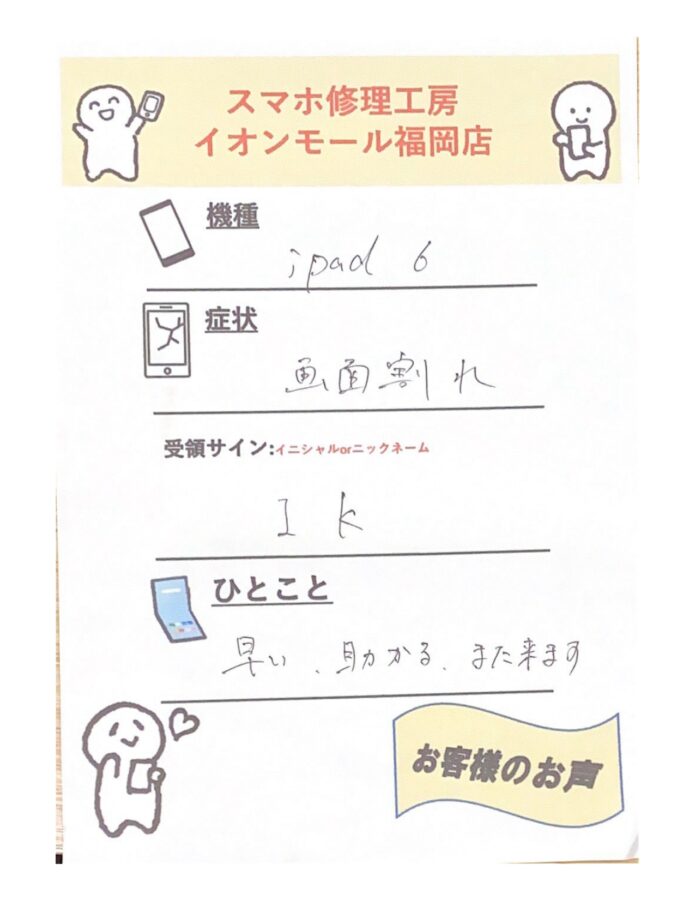 スマホ修理工房
イオンモール福岡店
機種
ipad 6
症状
画面割れ
受領サイン:イニシャルorニックネーム
I K
ひとこと
早い、助かる、また来ます
お客様のお声